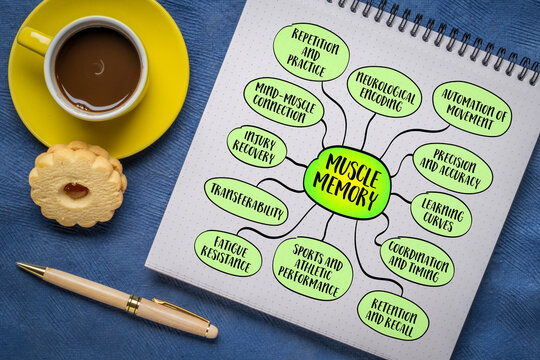 REPETITION AND
PRACTICE
NEUROLOGICAL
ENCODING
AUTOMATION OF
MOVEMENT
MIND-MUSCLE
CONNECTION
PRECISION
AND ACCURACY
INJURY
RECOVERY
MUSCLE
MEMORY
LEARNING
CURVES
TRANSFERABILITY
COORDINATION
AND TIMING
FATIGUE
RESISTANCE
SPORTS AND
ATHLETIC
PERFORMANCE
RETENTION
AND RECALL